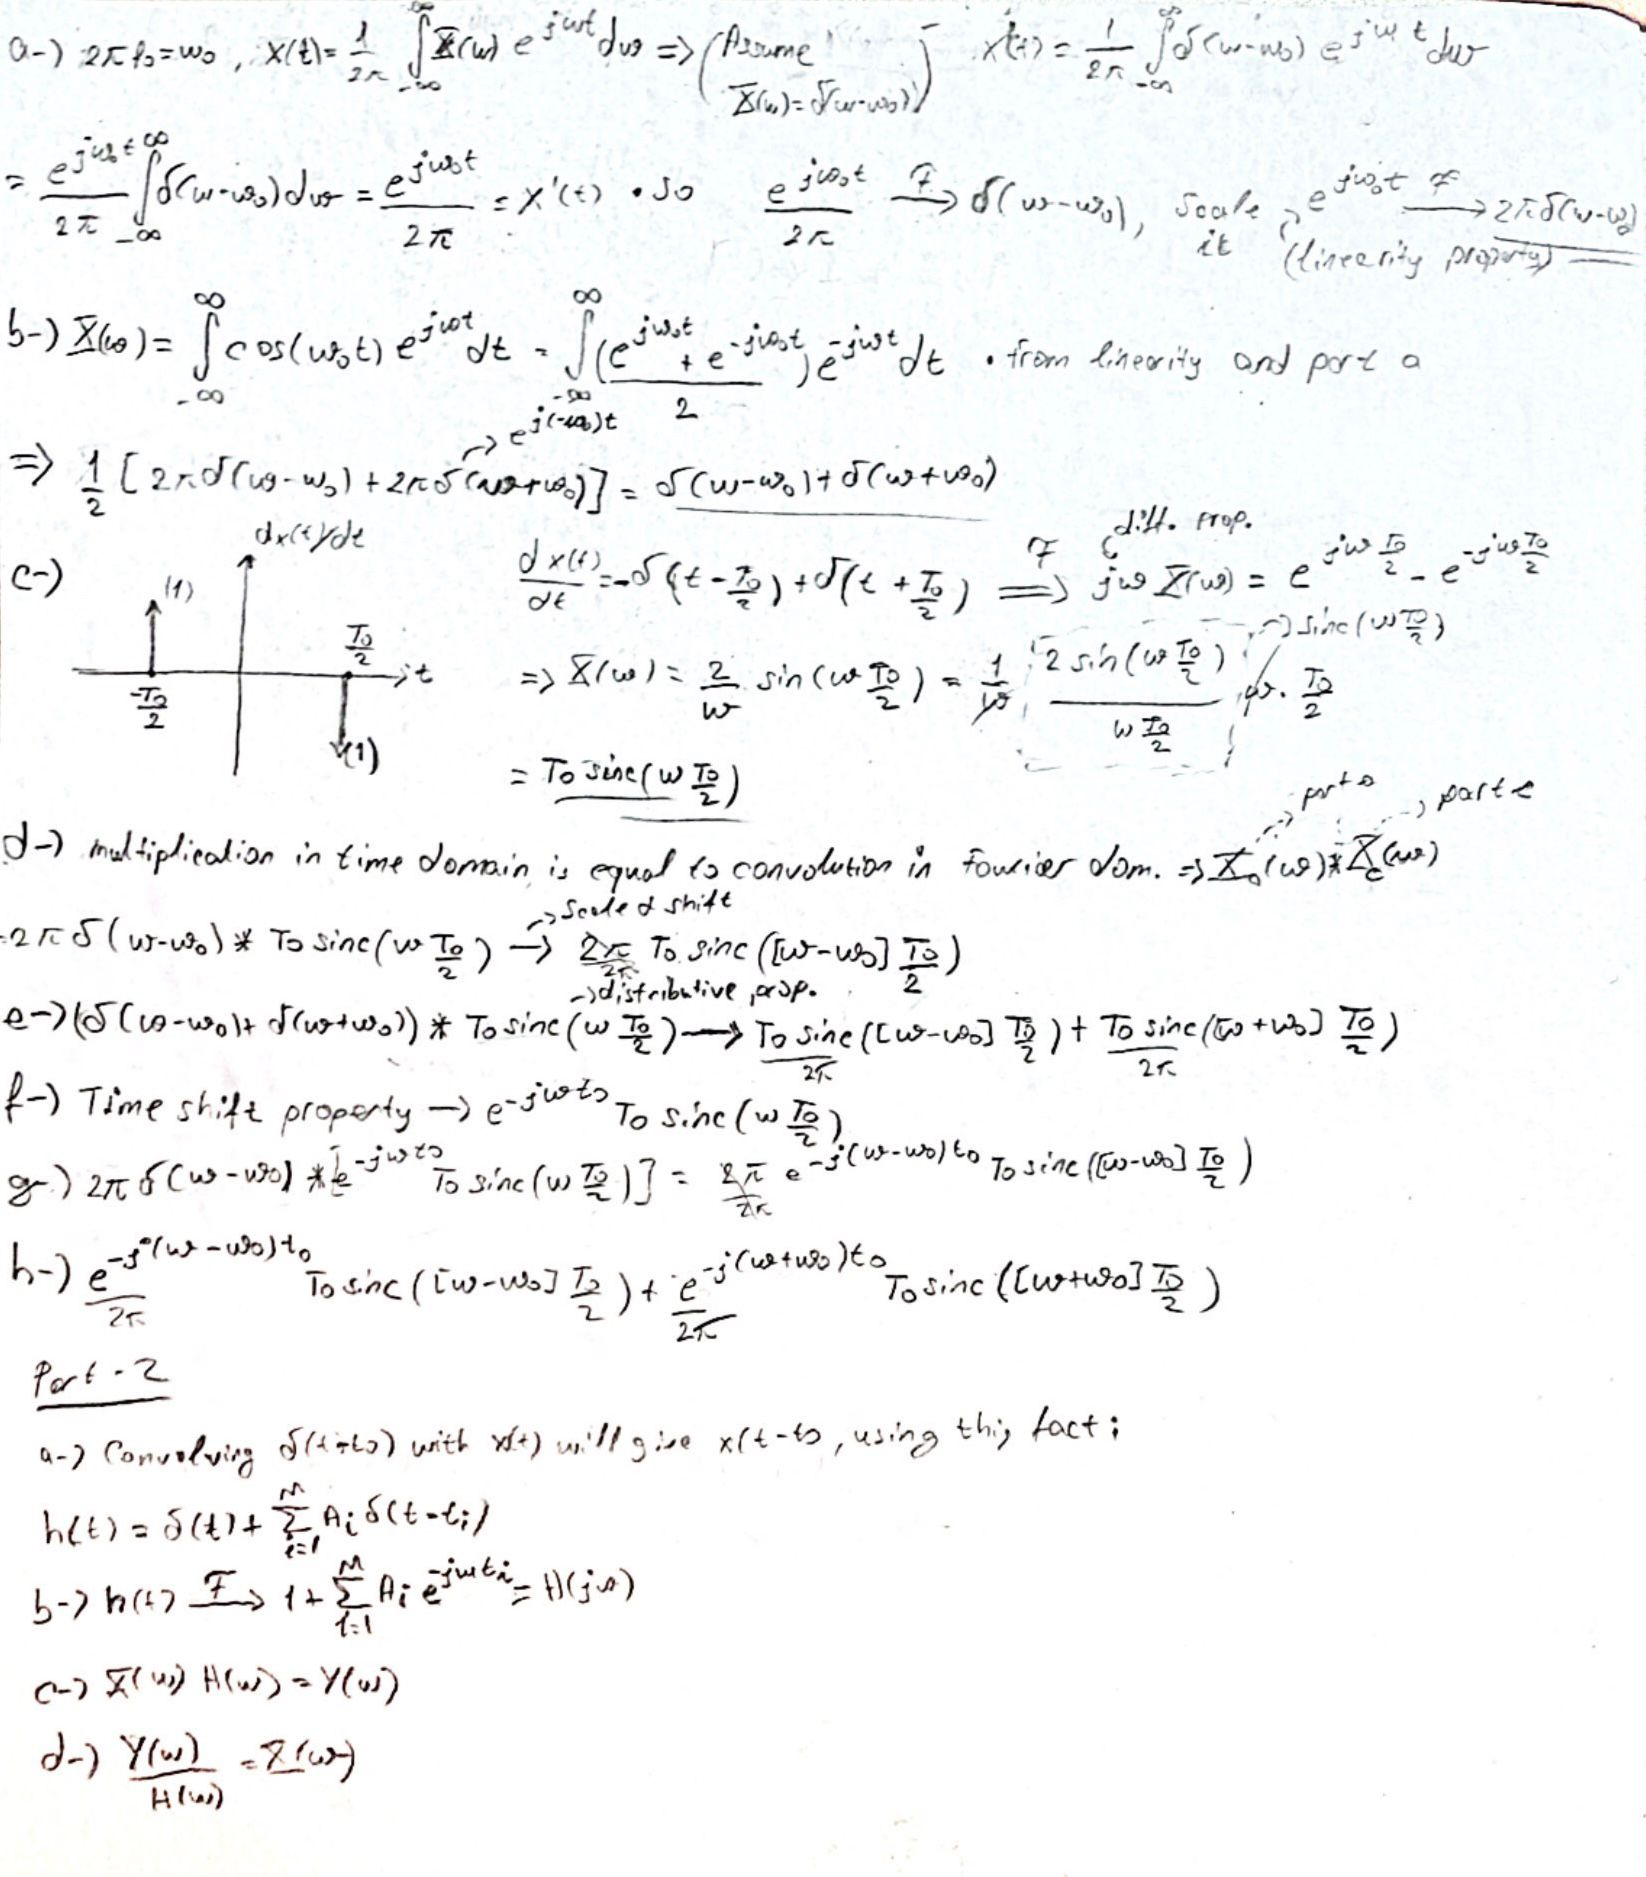 a-) 2πf₀=w₀, x(t)= 1/2π ∫_{-∞}^{∞} X(w) e^{jwt} dw => (Assume X(w)=δ(w-w₀)) x'(t) = 1/2π ∫_{-∞}^{∞} δ(w-w₀) e^{jwt} dw
= e^{jw₀t}/2π ∫_{-∞}^{∞} δ(w-w₀) dw = e^{jw₀t}/2π = x'(t) . So e^{jw₀t}/2π →F δ(w-w₀), scale it, e^{jw₀t} →F 2πδ(w-w₀) (linearity property)
b-) X(w) = ∫_{-∞}^{∞} cos(w₀t) e^{jwt} dt = ∫_{-∞}^{∞} (e^{jw₀t} + e^{-jw₀t})/2 e^{-jwt} dt . from linearity and part a
→ e^{j(-w₀)t}
=> 1/2 [2πδ(w-w₀) + 2πδ(w+w₀)] = δ(w-w₀) + δ(w+w₀)
c-) dx(t)/dt (1) -T₀/2 T₀/2 t (1)
dx(t)/dt = -δ(t - T₀/2) + δ(t + T₀/2) =>F diff. prop. jw X(w) = e^{jw T₀/2} - e^{-jw T₀/2}
=> X(w) = 2/w sin(w T₀/2) = 1/w 2 sin(w T₀/2) / (w T₀/2) w. T₀/2 → sinc(w T₀/2)
= T₀ sinc(w T₀/2)
d-) multiplication in time domain is equal to convolution in fourier dom. => X_a(w) * X_c(w) → part a → part c
=2πδ(w-w₀) * T₀ sinc(w T₀/2) → 2π/2π T₀ sinc([w-w₀] T₀/2) → Scale & shift
e-) (δ(w-w₀) + δ(w+w₀)) * T₀ sinc(w T₀/2) → T₀/2π sinc([w-w₀] T₀/2) + T₀/2π sinc([w+w₀] T₀/2) → distributive prop.
f-) Time shift property → e^{-jwt₀} T₀ sinc(w T₀/2)
g-) 2πδ(w-w₀) * [e^{-jwt₀} T₀ sinc(w T₀/2)] = 2π/2π e^{-j(w-w₀)t₀} T₀ sinc([w-w₀] T₀/2)
h-) e^{-j(w-w₀)t₀}/2π T₀ sinc([w-w₀] T₀/2) + e^{-j(w+w₀)t₀}/2π T₀ sinc([w+w₀] T₀/2)
Part-2
a-) Convolving δ(t-t₀) with x(t) will give x(t-t₀, using this fact;
h(t) = δ(t) + Σ_{i=1}^{M} A_i δ(t-t_i)
b-) h(t) →F 1+ Σ_{i=1}^{M} A_i e^{-jwt_i} = H(jw)
c-) X(w) H(w) = Y(w)
d-) Y(w)/H(w) = X(w)